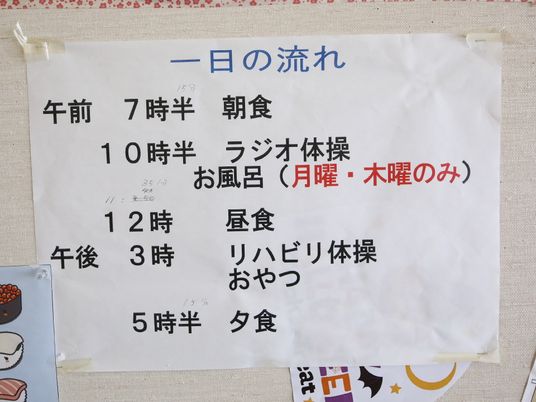 一日の流れ
午前 7時半 朝食
10時半 ラジオ体操
お風呂(月曜・木曜のみ)
12時 昼食
午後 3時 リハビリ体操
おやつ
5時半 夕食